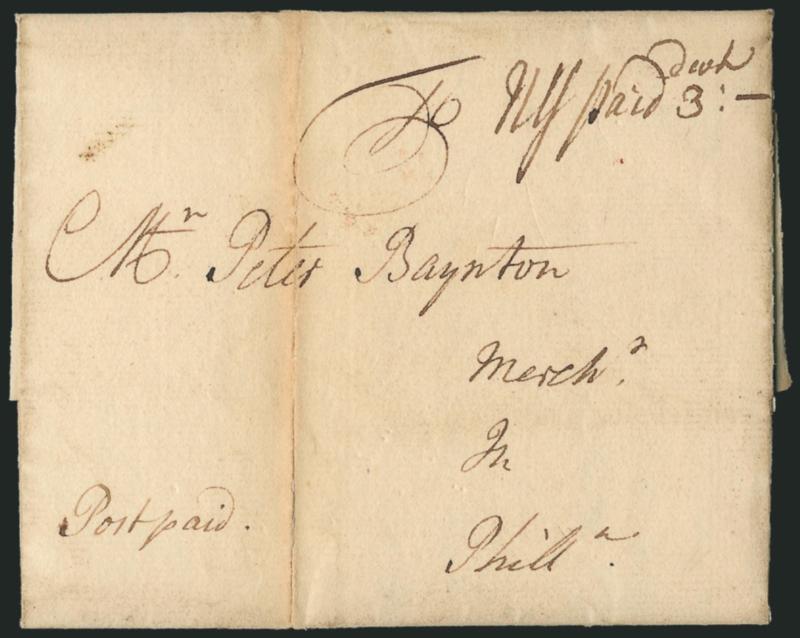 To NY paid dwt
3:—
Mr. Peter Baynton
Merch.t
In
Phill.a
Post paid.